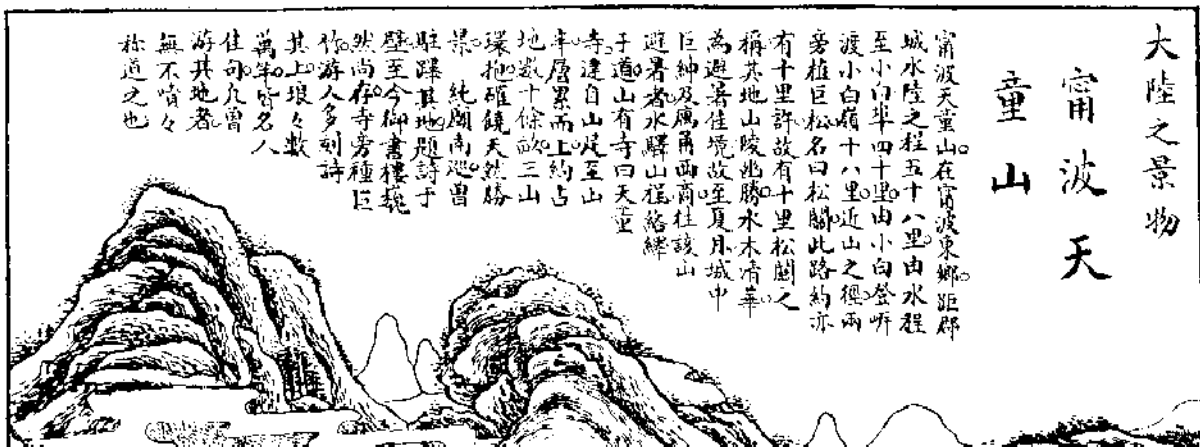 大陸之景物
甯波天
童山
甯波天童山在甯波東鄉距郡
城水陸之程五十八里由水程
至小白約四十里由小白登岸
渡小白嶺十八里近山之徑兩
旁植巨松名曰松關此路約亦
有十里許故有十里松關之
稱其地山陵幽勝水木清華
為避暑佳境故至夏月城中
巨紳及寓甬西商往該山
避暑者水驛山程絡繹
于道山有寺曰天童
寺建自山足至山
半層累而上約占
地数十餘畝三山
環抱確饒天然勝
景 純廟南巡曾
駐蹕其地題詩于
壁至今御書樓巍
然尚存寺旁種巨
竹游人多刻詩
其上琅々數
萬竿皆名人
佳句凡曾
游其地者
無不嘖々
称道之也